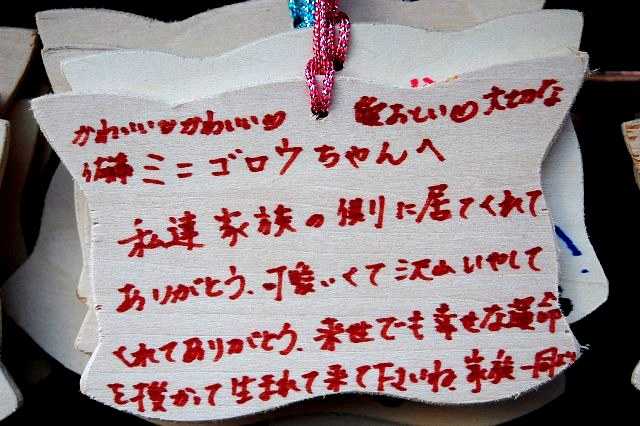 かわいい♡かわいい♡ 愛おしい♡大切な
ミニゴロウちゃんへ
私達家族の側に居てくれて
ありがとう、可愛いくて沢山いやして
くれてありがとう、来世でも幸せな運命
を授かって生まれて来て下さいね、家族一同より